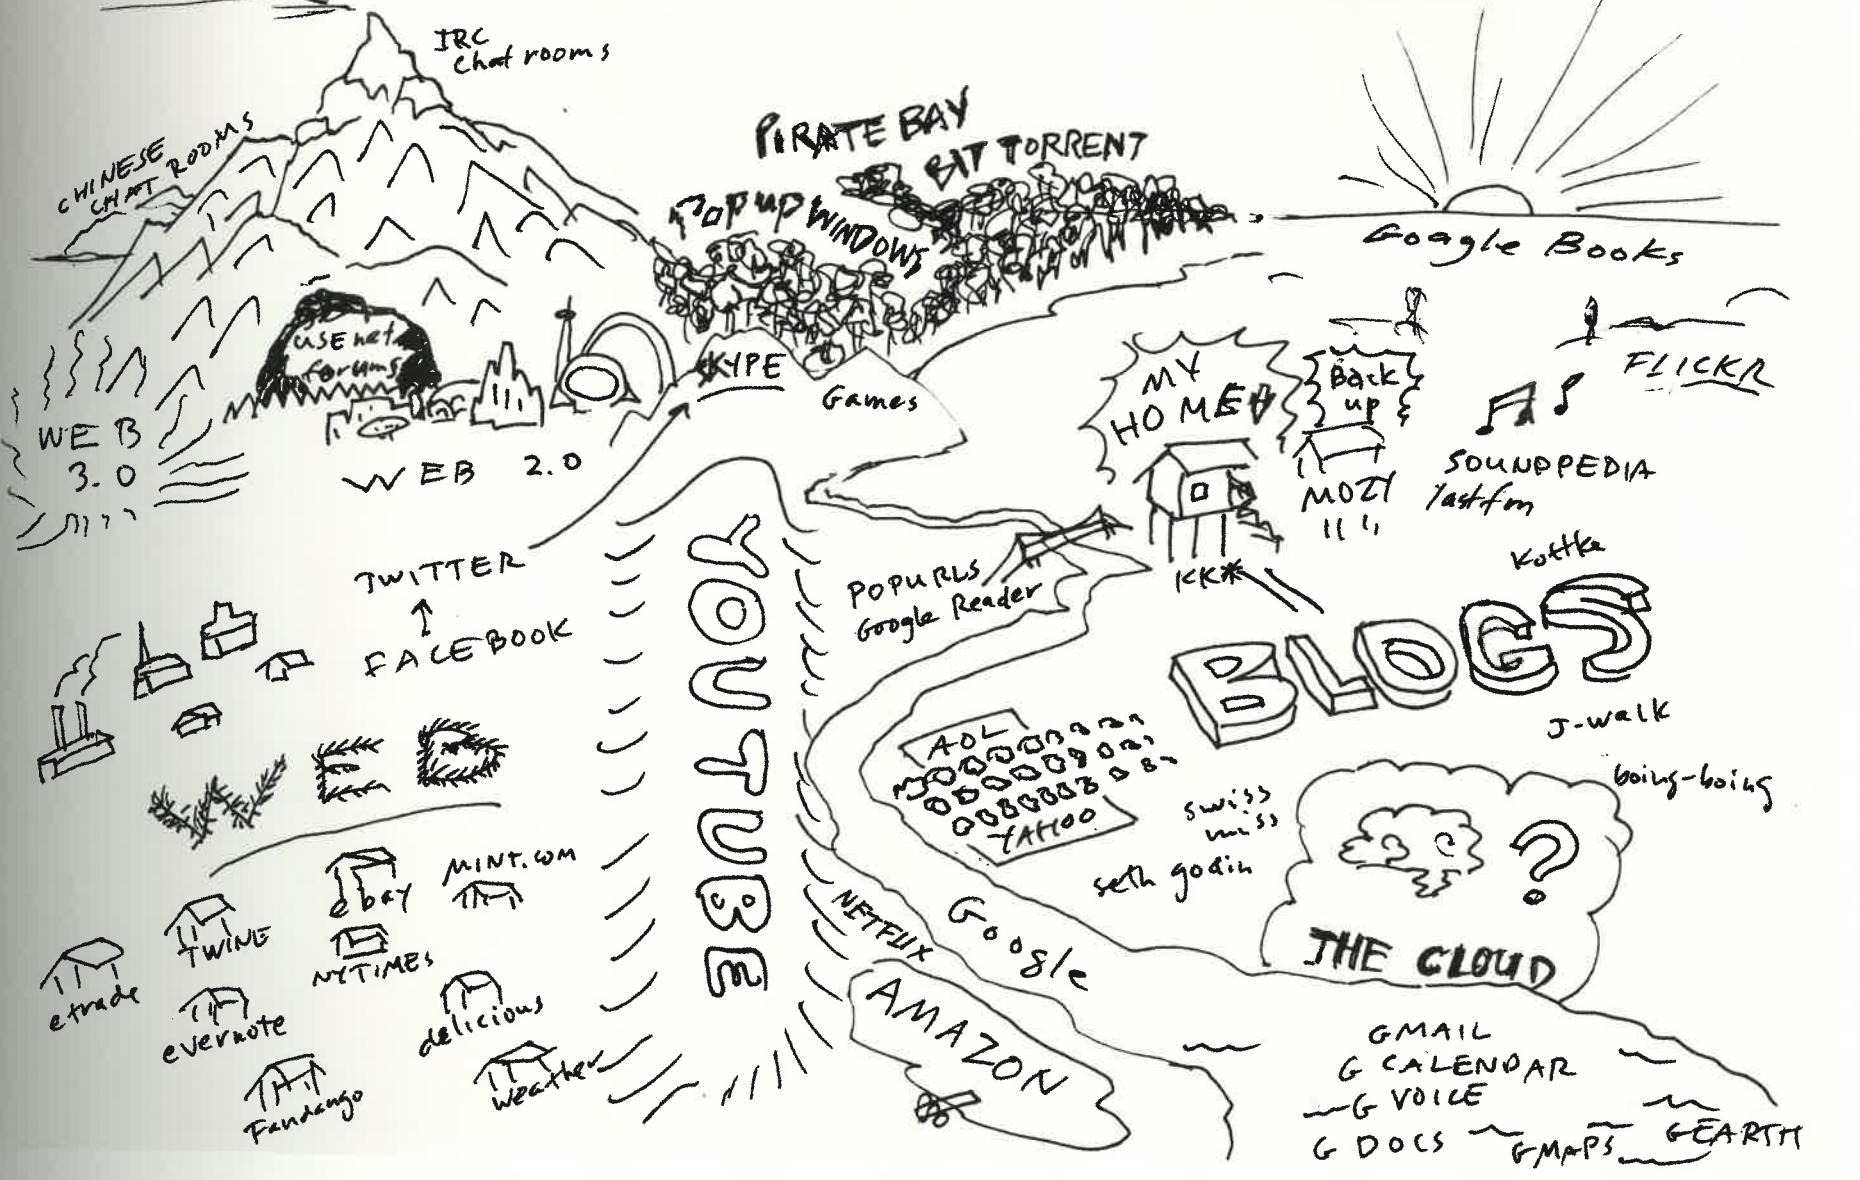 IRC
chat rooms
CHINESE
CHAT ROOMS
PIRATE BAY
BIT TORRENT
POP up WINDOWS
Google Books
usenet
forums
WEB
3.0
WEB 2.0
SKYPE
Games
MY
HOME
Back
up
MOZY
FLICKR
SOUNDPEDIA
last fm
TWITTER
FACEBOOK
YOUTUBE
POPURLS
Google Reader
KK*
Kottke
BLOGS
J-walk
boing-boing
AOL
YAHOO
swiss
miss
seth godin
WEB
ebay
MINT.com
TWINE
NYTIMES
etrade
evernote
delicious
Fandango
weather
NETFLIX
Google
AMAZON
?
THE CLOUD
GMAIL
G CALENDAR
G VOICE
G DOCS
GMAPS
GEARTH